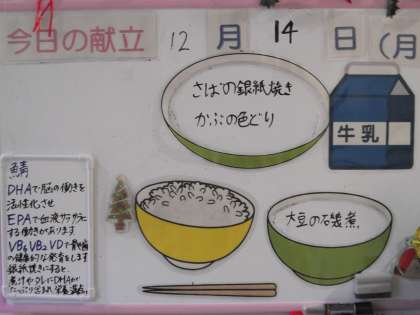 今日の献立 12月 14日(月
さばの銀紙焼き
かぶの色どり
牛乳
大豆の五目煮
鯖
DHAで脳の働きを
活性化させ
EPAで血液サラサラに
する働きがあります
VB6 VB2 VDで
の健康的な発育をします
銀紙焼きにすると、
煮汁やタレにDHAが